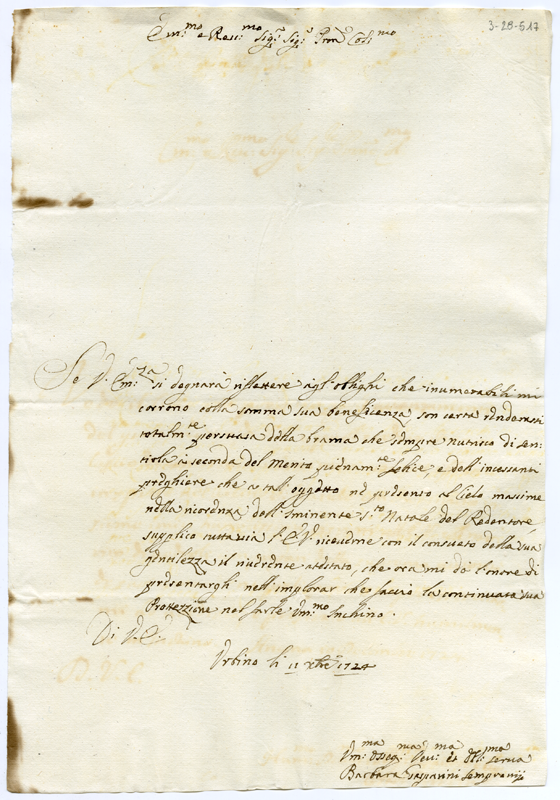 3-28-517
Em:mo e Rev:mo Sig:r Sig:r Pron Col:mo
Se V. Em:za si degnarà riflettere agl'oblighi che inumerabili mi
corrono colla somma sua beneficenza, son certa renderassi
totalm:te persuasa della brama che sempre nutrico di sen-
tirla a seconda del merito pienam:te felice, e dell'incessanti
preghiere che a tall'oggetto ne presento al Cielo massime
nella ricorrenza dell'iminente S:to Natale del Redentore
supplico tuttavia l'E.V. riceverne con il consueto della sua
gentilezza il riverente attestato, che ora mi do l'onore di
presentargli nell'implorar che faccio la continuata sua
Protezzione nel farle Um:mo Inchino.
Di V. E.
Urbino li 11 xbre 1724
Um:ma Dev:ma et Obl:ma serva
Barbara Gasparini Sempronij